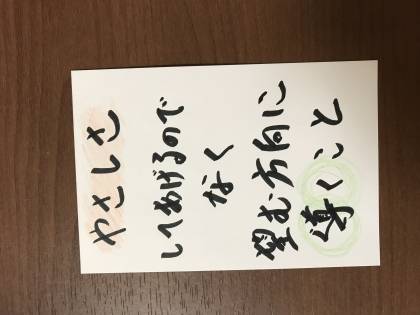 やさしさ
してあげるので
なく
望む方向に
導くこと